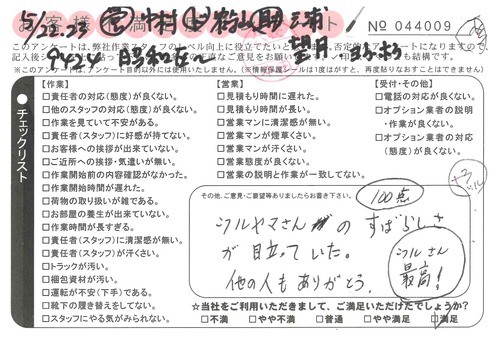 お客様満足度アンケート
№ 044009
5/22.23
9424 昭和女へ
このアンケートは、弊社作業スタッフのレベル向上に役立てたいと
※このアンケートは、アンケート目的以外には使用いたしません。(情報保護シールは1度はがすと、再度貼りなおすことはできません)
チェックリスト
【作業】
□責任者の対応(態度)が良くない。
□他のスタッフの対応(態度)が良くない。
□作業を見ていて不安がある。
□責任者(スタッフ)に好感が持てない。
□お客様への挨拶が出来ていない。
□ご近所への挨拶・気遣いが無い。
□作業開始前の内容確認がなかった。
□作業開始時間が遅れた。
□荷物の取り扱いが雑である。
□お部屋の養生が出来ていない。
□作業時間が長すぎる。
□責任者(スタッフ)に清潔感が無い。
□責任者(スタッフ)が汗くさい。
□トラックが汚い。
□梱包資材が汚い。
□運転が不安(下手)である。
□靴下の履き替えをしてない。
□スタッフにやる気がみられない。
【営業】
□見積もり時間に遅れた。
□見積もり時間が長い。
□営業マンに清潔感が無い。
□営業マンが煙草くさい。
□営業マンが汗くさい。
□営業態度が良くない。
□営業の説明と作業が一致してない。
【受付・その他】
□電話の対応が良くない。
□オプション業者の説明
・作業が良くない。
□オプション業者の対応
(態度)が良くない。
その他、ご意見・ご要望等ありましたらお書き下さい。
100点
ツルヤマさんの すばらしさ
が目立っていた。
他の人もありがとう。
ツルさん
最高!
☆当社をご利用いただきまして、ご満足いただけたでしょうか?
□不満 □やや不満 □普通 □やや満足 □満足